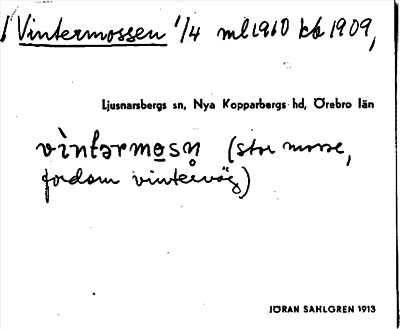 Vintermossen 1/4 ml 1910 kb 1909,
Ljusnarsbergs sn, Nya Kopparbergs hd, Örebro län
vìntərmo̲sn̥ (stor mosse,
fordom vinterväg)
JÖRAN SAHLGREN 1913